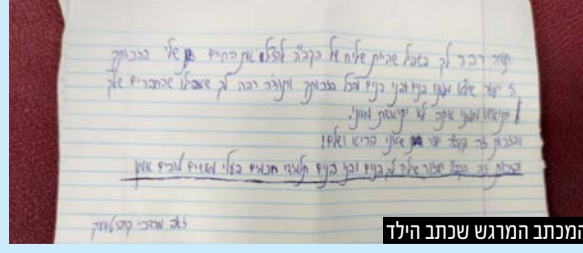 תודה רבה לך בשביל שהיית שליח של הקב"ה להציל את החיים שלי בזכותך
יצאו ממני בנים ובני בנים הכל בזכותך ותודה רבה לך שאפילו שהחברים שלך
התייאשו ממני אתה לא התייאשת ממני.
ובזכות זה קבל שאני בריא ושלם!
ובזכות זה תקבל שכר שיהיה לך בנים ובני בנים תלמידי חכמים בעלי מעשים טובים אמן
זאב מרדכי
המכתב המרגש שכתב הילד